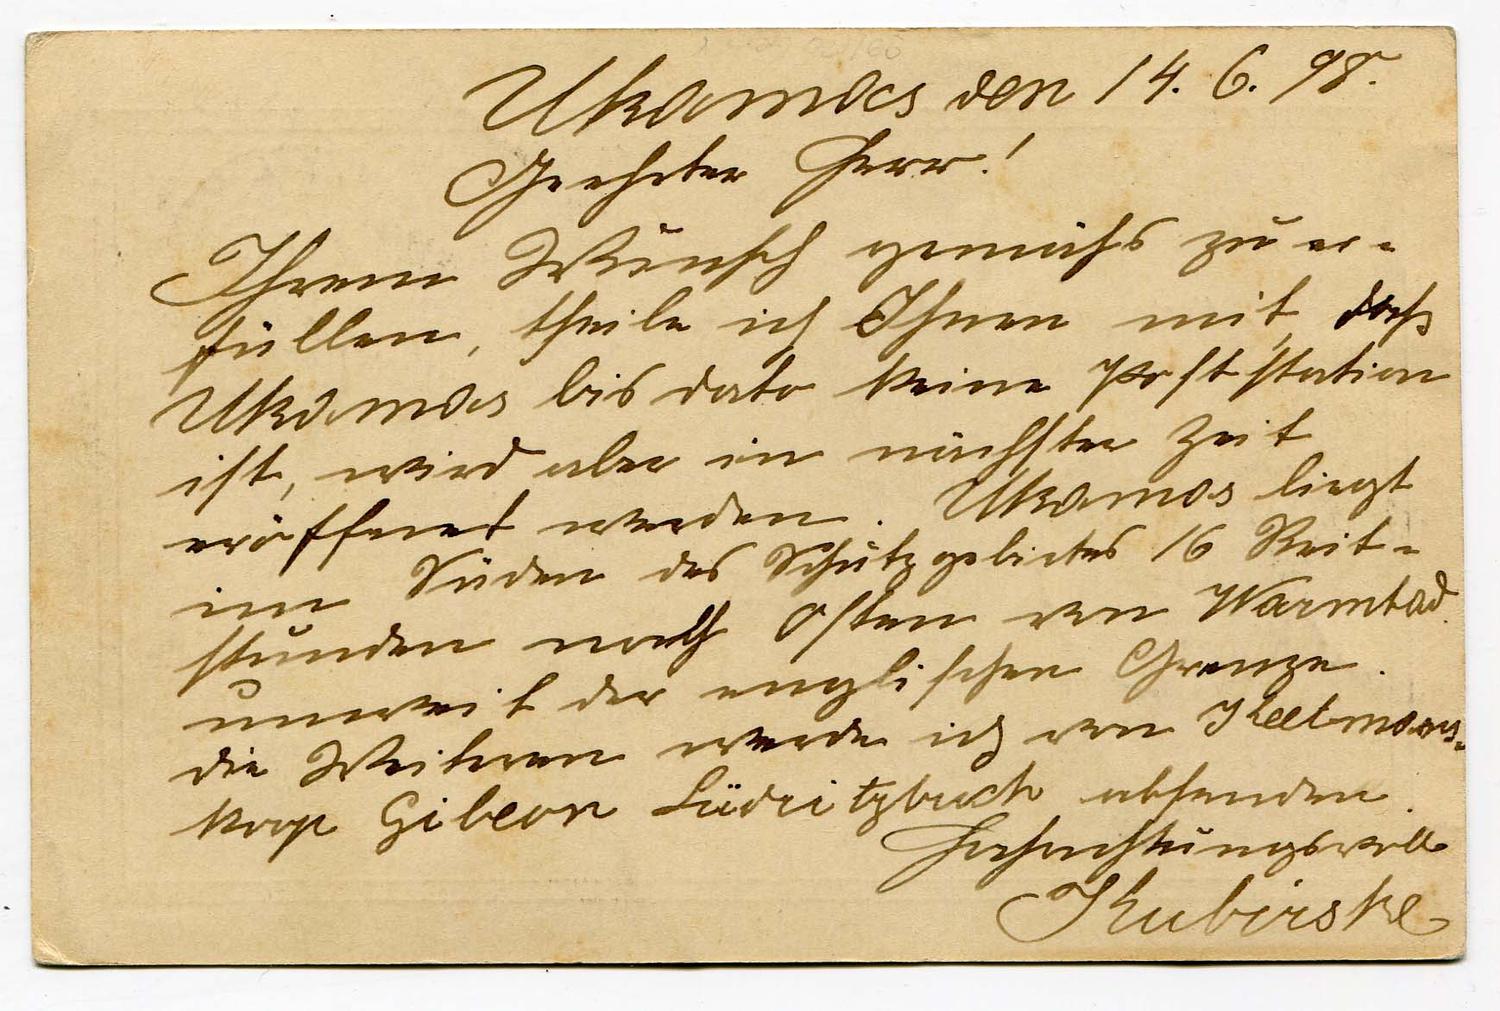 Ukamas den 14. 6. 98.
Geehrter Herr!
Ihrem Wunsch gemäß zu er-
füllen, theile ich Ihnen mit, daß
Ukamas bis dato keine Poststation
ist, wird aber in nächster Zeit
eröffnet werden. Ukamas liegt
im Süden des Schutzgebietes 16 Reit-
stunden nach Osten von Warmbad
unweit der englischen Grenze.
die Weiteren werde ich von Keetmans-
koop Gibeon Lüdritzbucht absenden.
Hochachtungsvoll
Kubirske